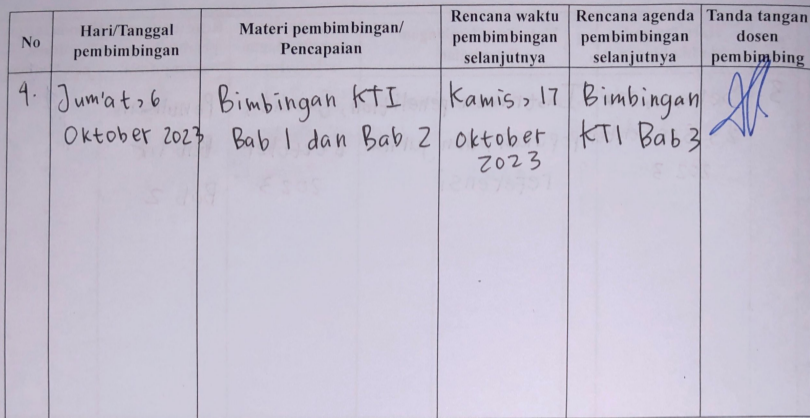 No
Hari/Tanggal
pembimbingan
Materi pembimbingan/
Pencapaian
Rencana waktu
pembimbingan
selanjutnya
Rencana agenda
pembimbingan
selanjutnya
Tanda tangan
dosen
pembimbing
4.
Jum'at, 6
Oktober 2023
Bimbingan KTI
Bab 1 dan Bab 2
Kamis, 17
Oktober
2023
Bimbingan
KTI Bab 3